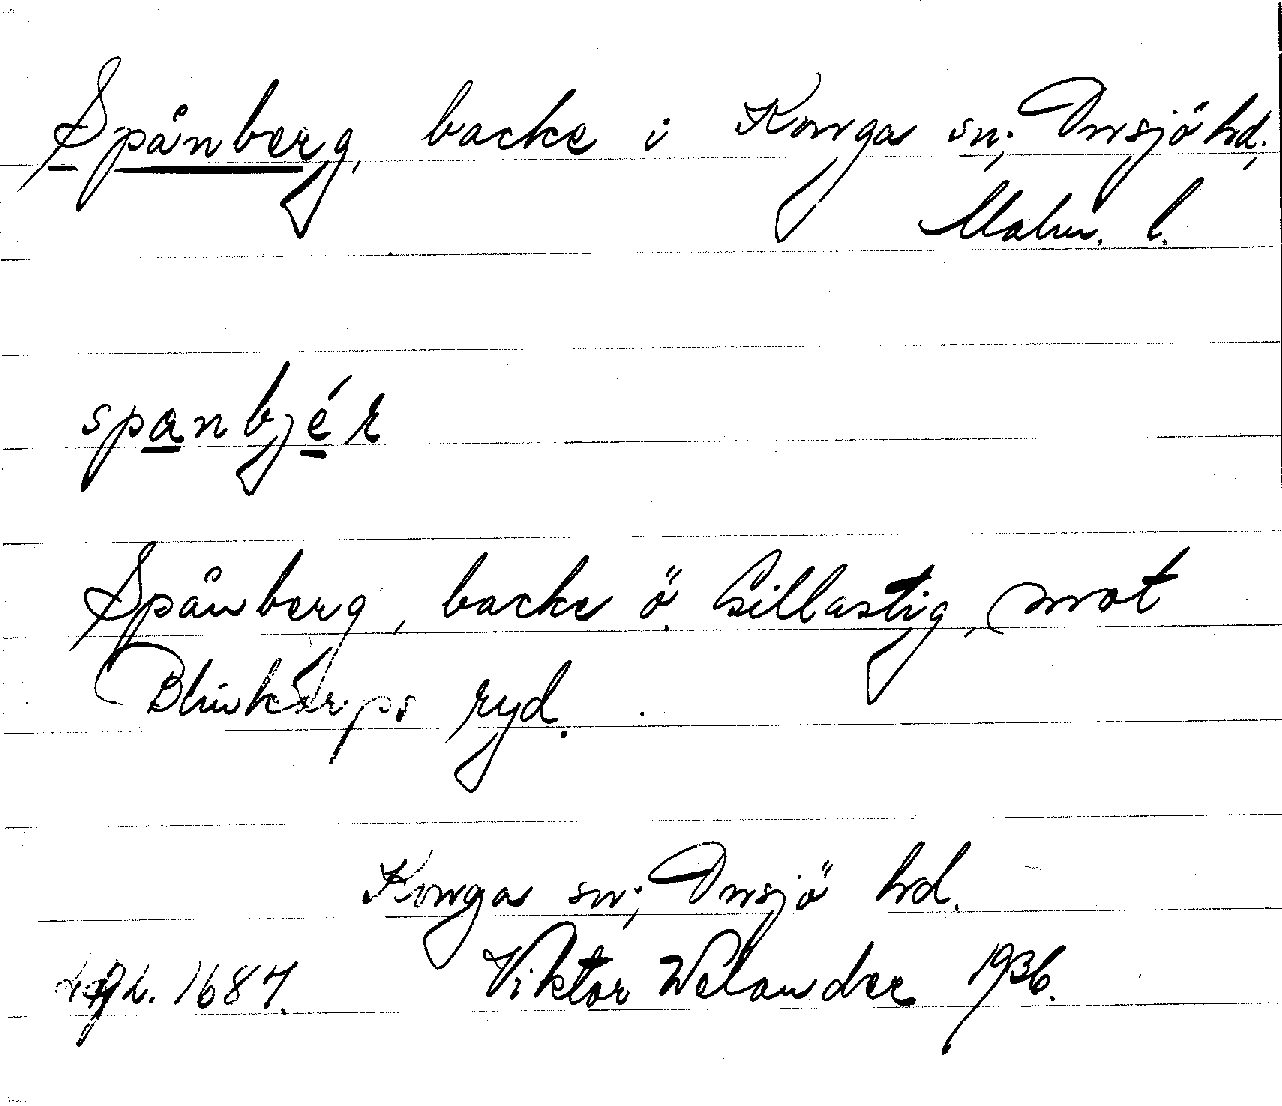 Spånberg, backe i Konga sn; Onsjö hd;
Malm. l.
spanbjér
Spånberg, backe ö. Gillastig, mot
Blinkarps ryd.
Konga sn; Onsjö hd.
1687. Viktor Welander 1936.